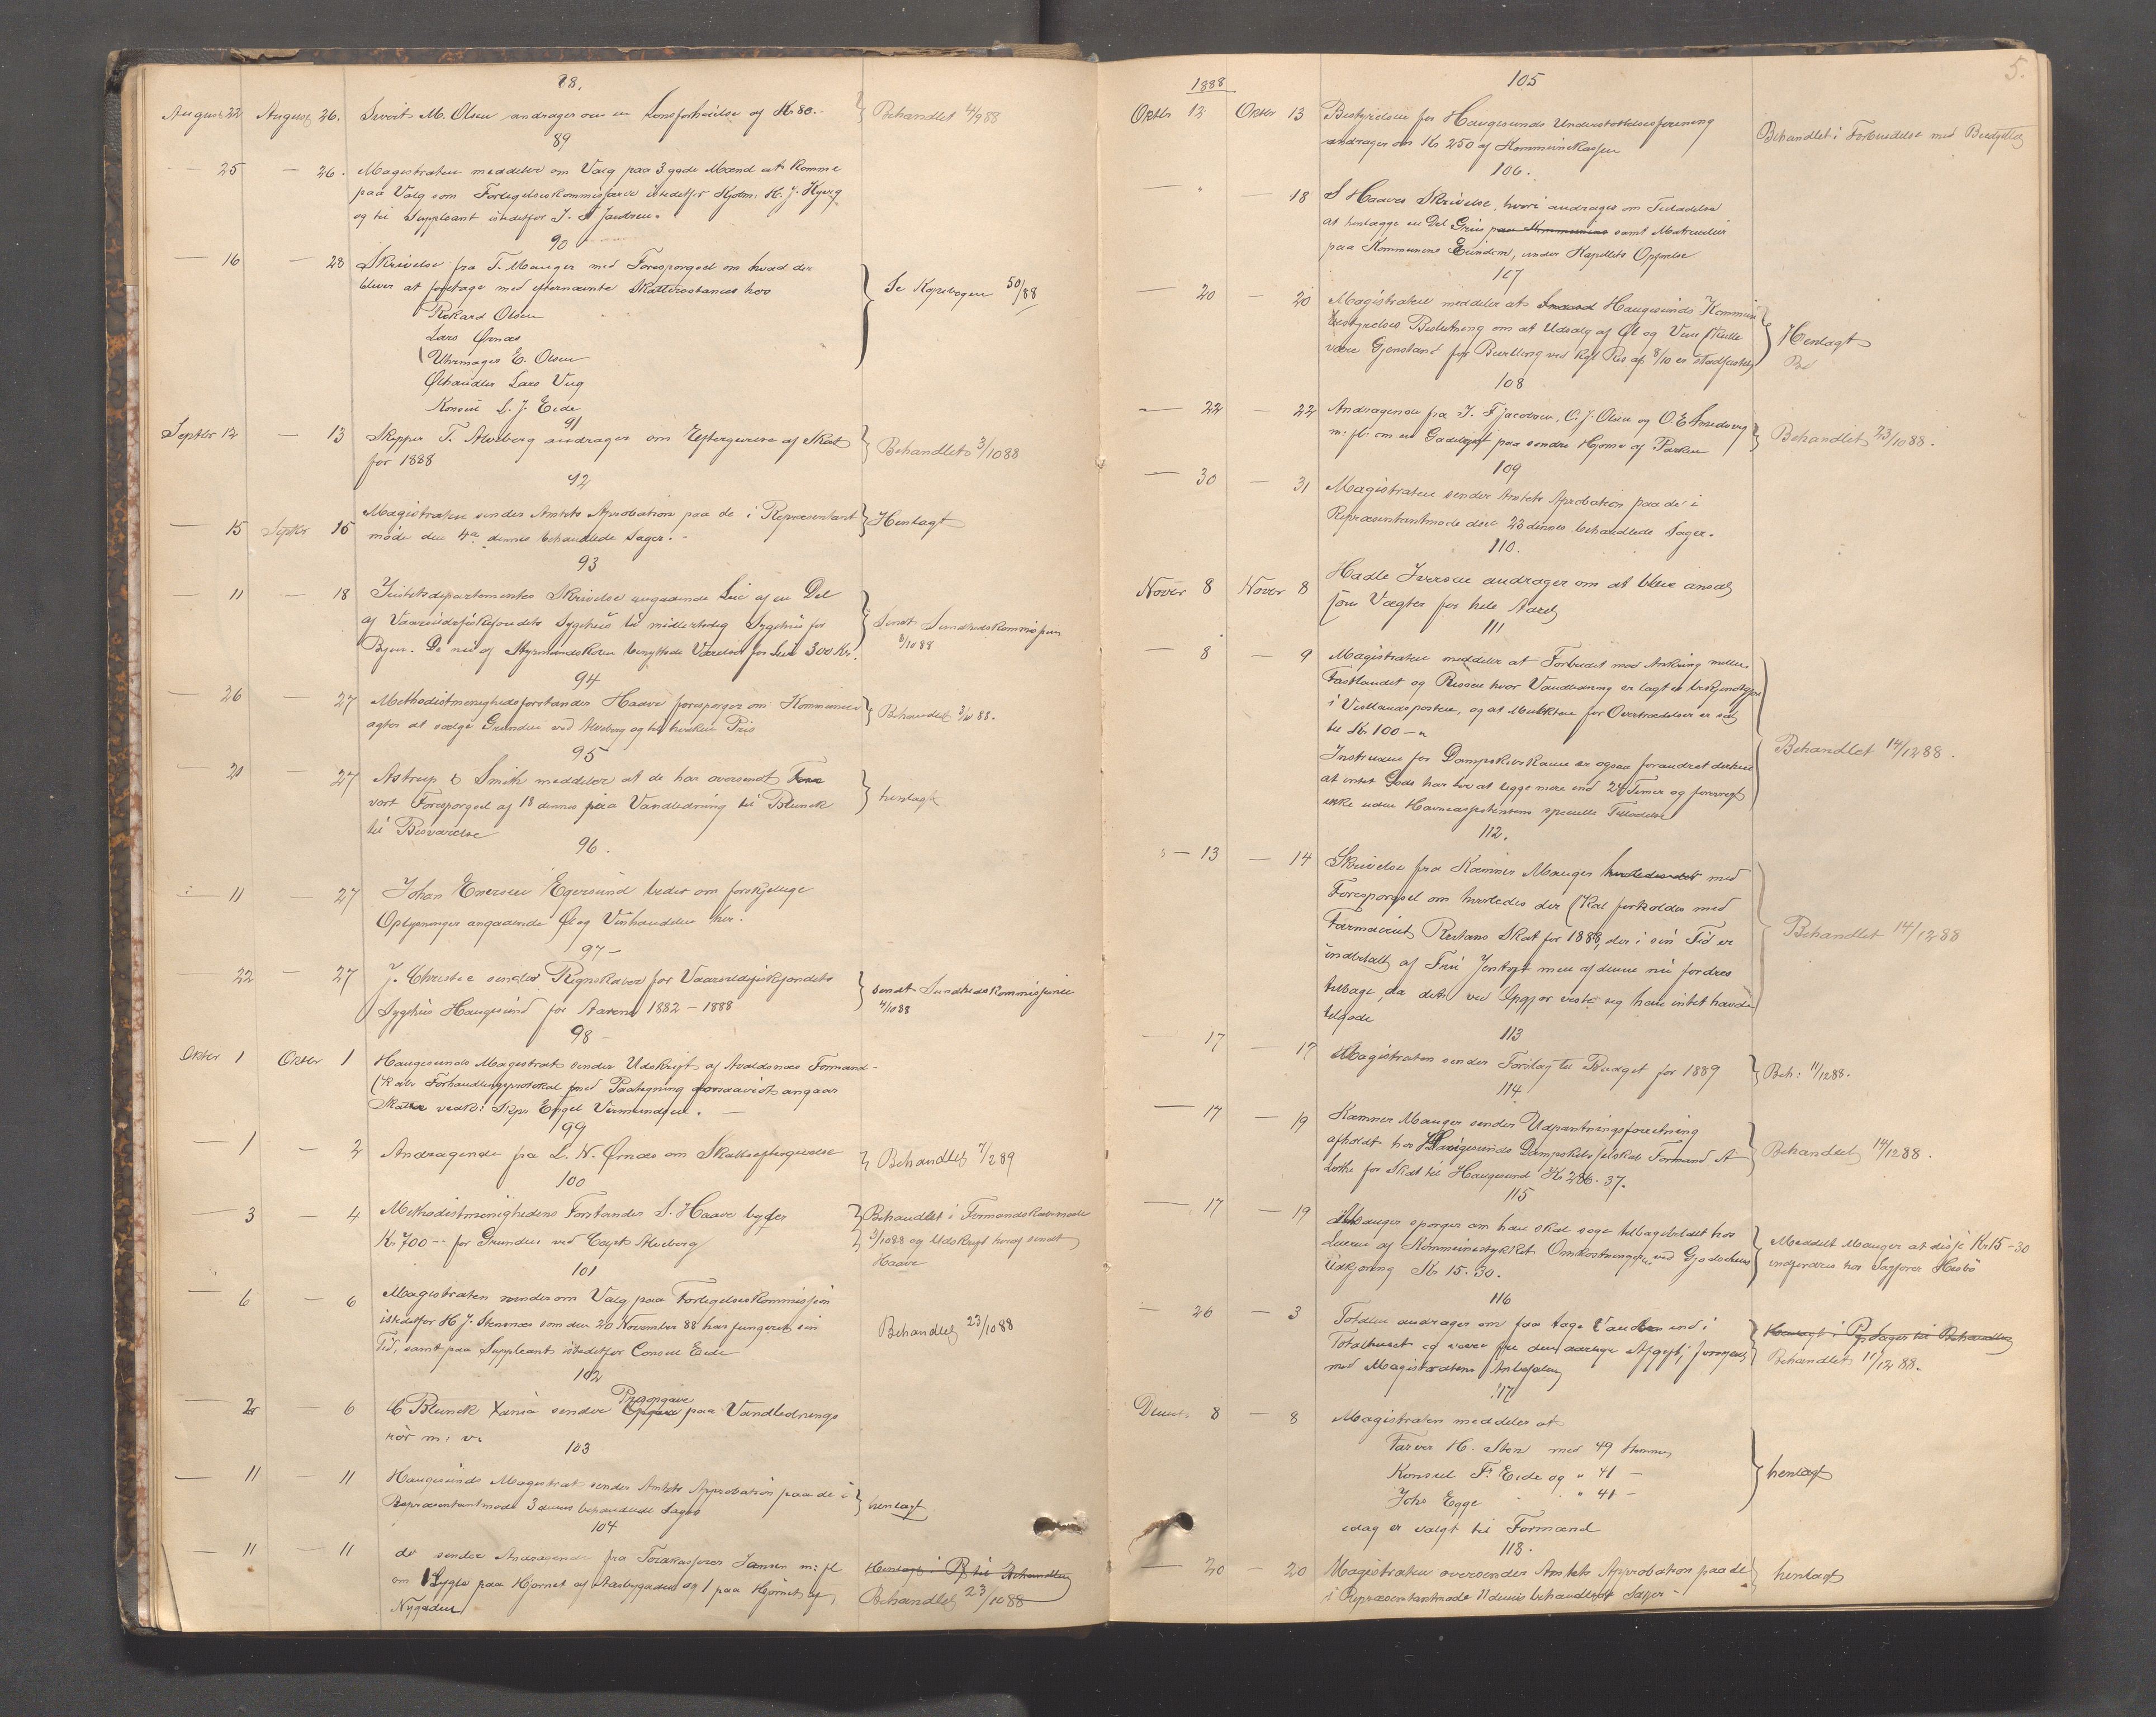 88.
August 22 August 26. Sivert M. Olsen andrager om en Lønsforhøielse af Kr 80.- Behandlet 4/9 88
89
— 25 — 26. Magistraten meddeler om Valg paa 3 gode Mænd at komme
paa Valg som Forligelseskommissærer istedetfor Kjøbm. H. J.
og til Suppleant istedetfor J.
90
— 16 — 28 Skrivelse fra T. Mauger med Forespørgsel om hvad der
bliver at foretage med efternævnte Skatterestancer hos Se Kopibogen 50/88
Rikard Olsen
Lars Ørnæs
Uhrmager E. Olsen
Ølhandler Lars
Konsul L. J. Eide
91
Septbr 12 — 13 Skipper T. Alvsberg andrager om Eftergivelse af Skat
for 1888 Behandlet 3/10 88
92
— 15 Septbr 16 Magistraten sender Amtets Aprobation paa de i Repræsentant
møde den 4de dennes behandlede Sager. Henlagt
93
— 11 — 18 Justitsdepartementes Skrivelse angaaende Leie af en Del
af Vaarsildfiskefondets Sygehus til midlertidig Sygehus for
Byen. De nu af Styrmandsskolen benyttede Værelser for Leie 300 Kr. Sendt Sundhedskommissjon
3/10 88
94
— 26 — 27 Methodistmenighedsforstander Haave forespørger om Kommunen
agter at sælge Grunden ved Alvsberg og til hvilken Pris Behandlet 3/10 88.
95
— 21 — 27 Astrup & Smith meddeler at de har oversendt
vort Forespørgsel af 18 dennes paa Vandledning til Blunck
til Besvarelse henlagt
96.
— 11 — 27 Johan Enersen Egersund beder om forskjellige
Oplysninger angaaende Øl og Vinhandelen her.
97 —
— 22 — 27 J. Christie sender Regnskaber for Vaarsildfiskfondets
Sygehus Haugesund for Aarene 1882 — 1888 sendt Sundhedskommissionen
4/10 88
98
Oktbr 1 Oktbr 1 Haugesunds Magistrat sender Udskrift af Avaldsnæs Formand-
skabs Forhandlingsprotokol med Paategning angaar
Skatten vedk: Skpr Engel Vermundsen. —
99
— 1 — 2 Andragende fra L. N. Ørnæs om Skatteeftergivelse Behandlet 7/2 89
100
— 3 — 4 Methodistmenighedens Forstander S. Haave byder
Kr 700 -- for Grunden ved Capt Alvsberg Behandlet i Formandskabsmøde
3/10 88 og Udskrift heraf sendt
Haave
101
— 6 — 6 Magistraten minder om Valg paa Forligelseskommission
istedetfor H J. Stensnæs som den 20 November 88 har fungeret sin
Tid, samt paa Suppleant istedetfor Consul Eide Behandlet 23/10 88
102
— 2 — 6 C Blunck Xania sender Prisopgave paa Vandlednings
rør m: v.
103
— 11 — 11 Haugesunds Magistrat sender Amtets Approbation paa de i
Repræsentantmøde 3 dennes behandlede Sager henlagt
104
— 11 — 11 do sender Andragende fra Toldkasserer Jansen m: fl
om 1 Lygte paa Hjørnet af Aasbygaden og 1 paa Hjørnet af
Nygaden Henlagt i P. til Behandling
Behandlet 23/10 88
5.
1888 105
Oktbr 12 Oktbr 13 Bestyrelsen for Haugesunds Understøttelsesforening
andrager om Kr 250 af Kommunekassen Behandlet i Forbindelse med Budgettet
106.
— " 18 S Haaves Skrivelse, hvori andrages om Tilladelse
at henlægge en Del Grus paa Kommunens samt Materialier
paa Kommunens Eiendom, under Kapellets Opførelse
107
— 20 — 20 Magistraten meddeler at Haugesunds Kommune
bestyrelses Beslutning om at Udsalg af Øl og Vin skulle
være Gjenstand for Bevilling ved Kgl Res af 8/10 er stadfæstet Henlagt
108
— 22 — 22 Andragende fra J. F Jacobsen, O. J. Olsen og O. E Smedsvig
m: fl: om en Gadelygt paa søndre Hjørne af Parken Behandlet 23/10 88.
109
— 30 — 31 Magistraten sender Amtets Aprobation paa de i
Repræsentantmøde den 23 dennes behandlede Sager.
110.
Novbr 8 Novbr 8 Hadle Iversen andrager om at blive ansat
som Vægter for hele Aaret
111
— 8 — 9 Magistraten meddeler at Forbudet mod Ankring mellem
Fastlandet og Risøen hvor Vandledning er lagt er bekjendtgjort
i Vestlandsposten, og at Mulkten for Overtrædelser er sat
til Kr 100 — "
Instruxen for Dampskibskaien er ogsaa forandret derhen
at intet Gods har lov at ligge mere end 24 Timer og forøvrigt
ikke uden Havneinspektørens specielle Tilladelse Behandlet 14/12 88.
112.
— 13 — 14 Skrivelse fra Kæmner Mauger hvorledes det med
Forespørgsel om hvorledes der skal forholdes med
Restans Skat for 1888, der i sin Tid er
indbetalt af Fru Jentoft men af denne nu fordres
tilbage, da dette ved Opgjør viste sig han intet havde
tilgode Behandlet 14/12 88
113
— 17 — 17 Magistraten sender Forslag til Budget for 1889 Beh: 11/12 88.
114
— 17 — 19 Kæmner Mauger sender Udpantningsforretning
afholdt hos Haugesunds Dampskibsselskab Formand A
Lothe for Skat til Haugesund Kr 286. 37. Behandlet 14/12 88.
115
— 17 — 19 Mauger spørger om han skal søge tilbagebetalt hos
Leieren af Kommunestykket Omkostningerne ved Gjødselens
Udkjøring Kr 15. 30. Meddelt Mauger at disse Kr 15 — 30
indfordres hos Sagfører Husbø
116
— 26 — 3 Totalen andrager om faa tage Vandet ind i
Totalhuset og være fri den aarlige Afgift, forøvrigt
med Magistratens Anbefaling Henlagt i Pgs Sager til Behandling
Behandlet 11/12 88.
117
Decmbr 8 — 8 Magistraten meddeler at
Farver H. Sten med 49 Stemmer
Konsul Fr Eide og " 41 —
Johs Egge " 41 —
idag er valgt til Formænd henlagt
118.
— 20 — 20 Magistraten oversender Amtets Approbation paa de
i Repræsentantmøde 11 dennes behandlede Sager - henlagt